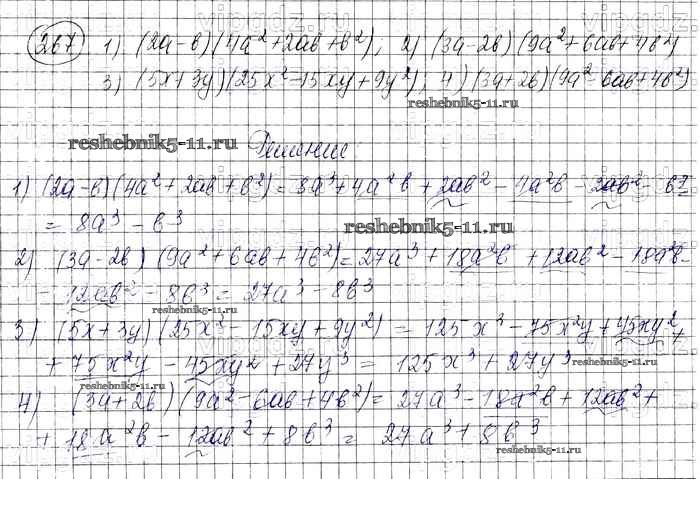 267 1) (2a-b)(4a²+2ab+b²); 2) (3a-2b)(9a²+6ab+4b²)
3) (5x+3y)(25x²-15xy+9y²); 4) (3a+2b)(9a²-6ab+4b²)
reshebnik5-11.ru
reshebnik5-11.ru Решение:
1) (2a-b)(4a²+2ab+b²)=8a³+4a²b+2ab²-4a²b-2ab²-b³=
= 8a³-b³
reshebnik5-11.ru
2) (3a-2b)(9a²+6ab+4b²)=27a³+18a²b+12ab²-18a²b-
-12ab²-8b³=27a³-8b³
reshebnik5-11.ru
3) (5x+3y)(25x²-15xy+9y²)=125x³-75x²y+45xy²+
+75x²y-45xy²+27y³=125x³+27y³
reshebnik5-11.ru
reshebnik5-11.ru
4) (3a+2b)(9a²-6ab+4b²)=27a³-18a²b+12ab²+
+18a²b-12ab²+8b³=27a³+8b³
reshebnik5-11.ru